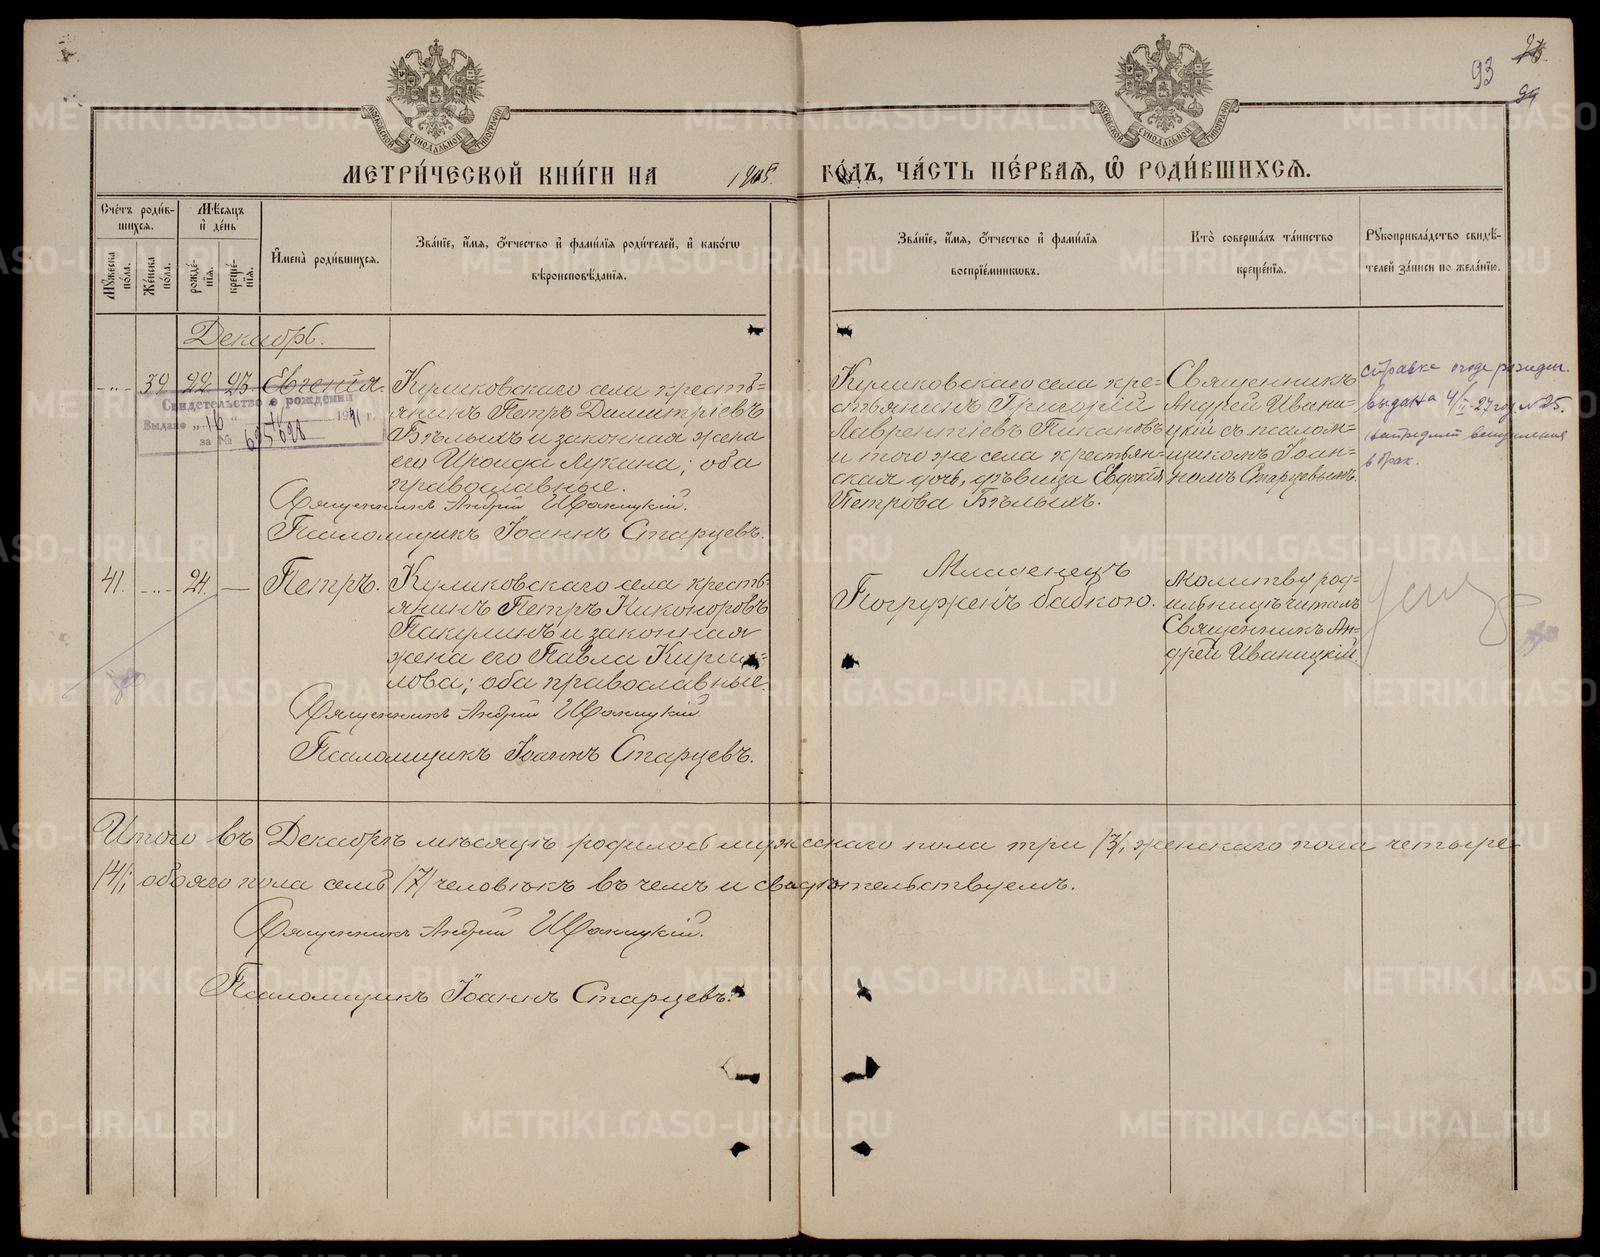 93
МЕТРИ́ЧЕСКОЙ КНИ́ГИ НА 1905. ГО́ДЪ, ЧА́СТЬ ПЕ́РВАЯ, Ѡ҆ РОДИ́ВШИХСЯ.
Сче́тъ роди́вшихся.
Му́жеска по́ла.
Же́нска по́ла.
Мѣ́сяцъ и҆ де́нь
рожде́нїя.
креще́нїя.
И҆мена̀ роди́вшихся.
Зва́нїе, и҆́мя, ѻ҆́тчество и҆ фами́лїя роди́телей, и҆ како́гѡ
вѣроисповѣ́данїя.
Зва́нїе, и҆́мя, ѻ҆́тчество и҆ фами́лїя
воспрїе́мниковъ.
Кто̀ соверша́лъ та́инство
креще́нїя.
Рꙋкоприкла́дство свидѣ́-
телей за́писи по жела́нїю.
Декабрь.
39 22 23 Евгенія.
Свидетельство о рождении
Выдано „16" 1941 г.
за №
Куликовскаго села кресть=
янинъ Петръ Димитріевъ
Бѣлыхъ и законная жена
его Ироида Лукина; оба
православные.
Священникъ Андрей Иваницкій.
Псаломщикъ Іоаннъ Старцевъ.
Куликовскаго села кре=
стьянинъ Григорій
Лаврентіевъ Пикановъ
и того же села крестьян=
ская дочь, дѣвица Евдокія
Петрова Бѣлыхъ.
Священникъ
Андрей Ивани=
цкій съ псалом=
щикомъ Іоан=
номъ Старцевымъ.
справка о годе рожден.
выдана 4/II-27 год № 25.
в брак.
41. 24. — Петръ.
Куликовскаго села кресть=
янинъ Петръ Никоноровъ
Пакулинъ и законная
жена его Павла Кирил=
лова; оба православные.
Священникъ Андрей Иваницкій
Псаломщикъ Іоаннъ Старцевъ.
Младенецъ
Погруженъ бабкою.
Молитву род=
ильницѣ читалъ
Священникъ Ан=
дрей Иваницкій.
Итого въ Декабрѣ мѣсяцѣ родилось мужескаго пола три /3/, женскаго пола четыре
/4/; обоего пола семь /7/ человѣкъ въ чемъ и свидѣтельствуемъ.
Священникъ Андрей Иваницкій.
Псаломщикъ Іоаннъ Старцевъ.
METRIKI.GASO-URAL.RU